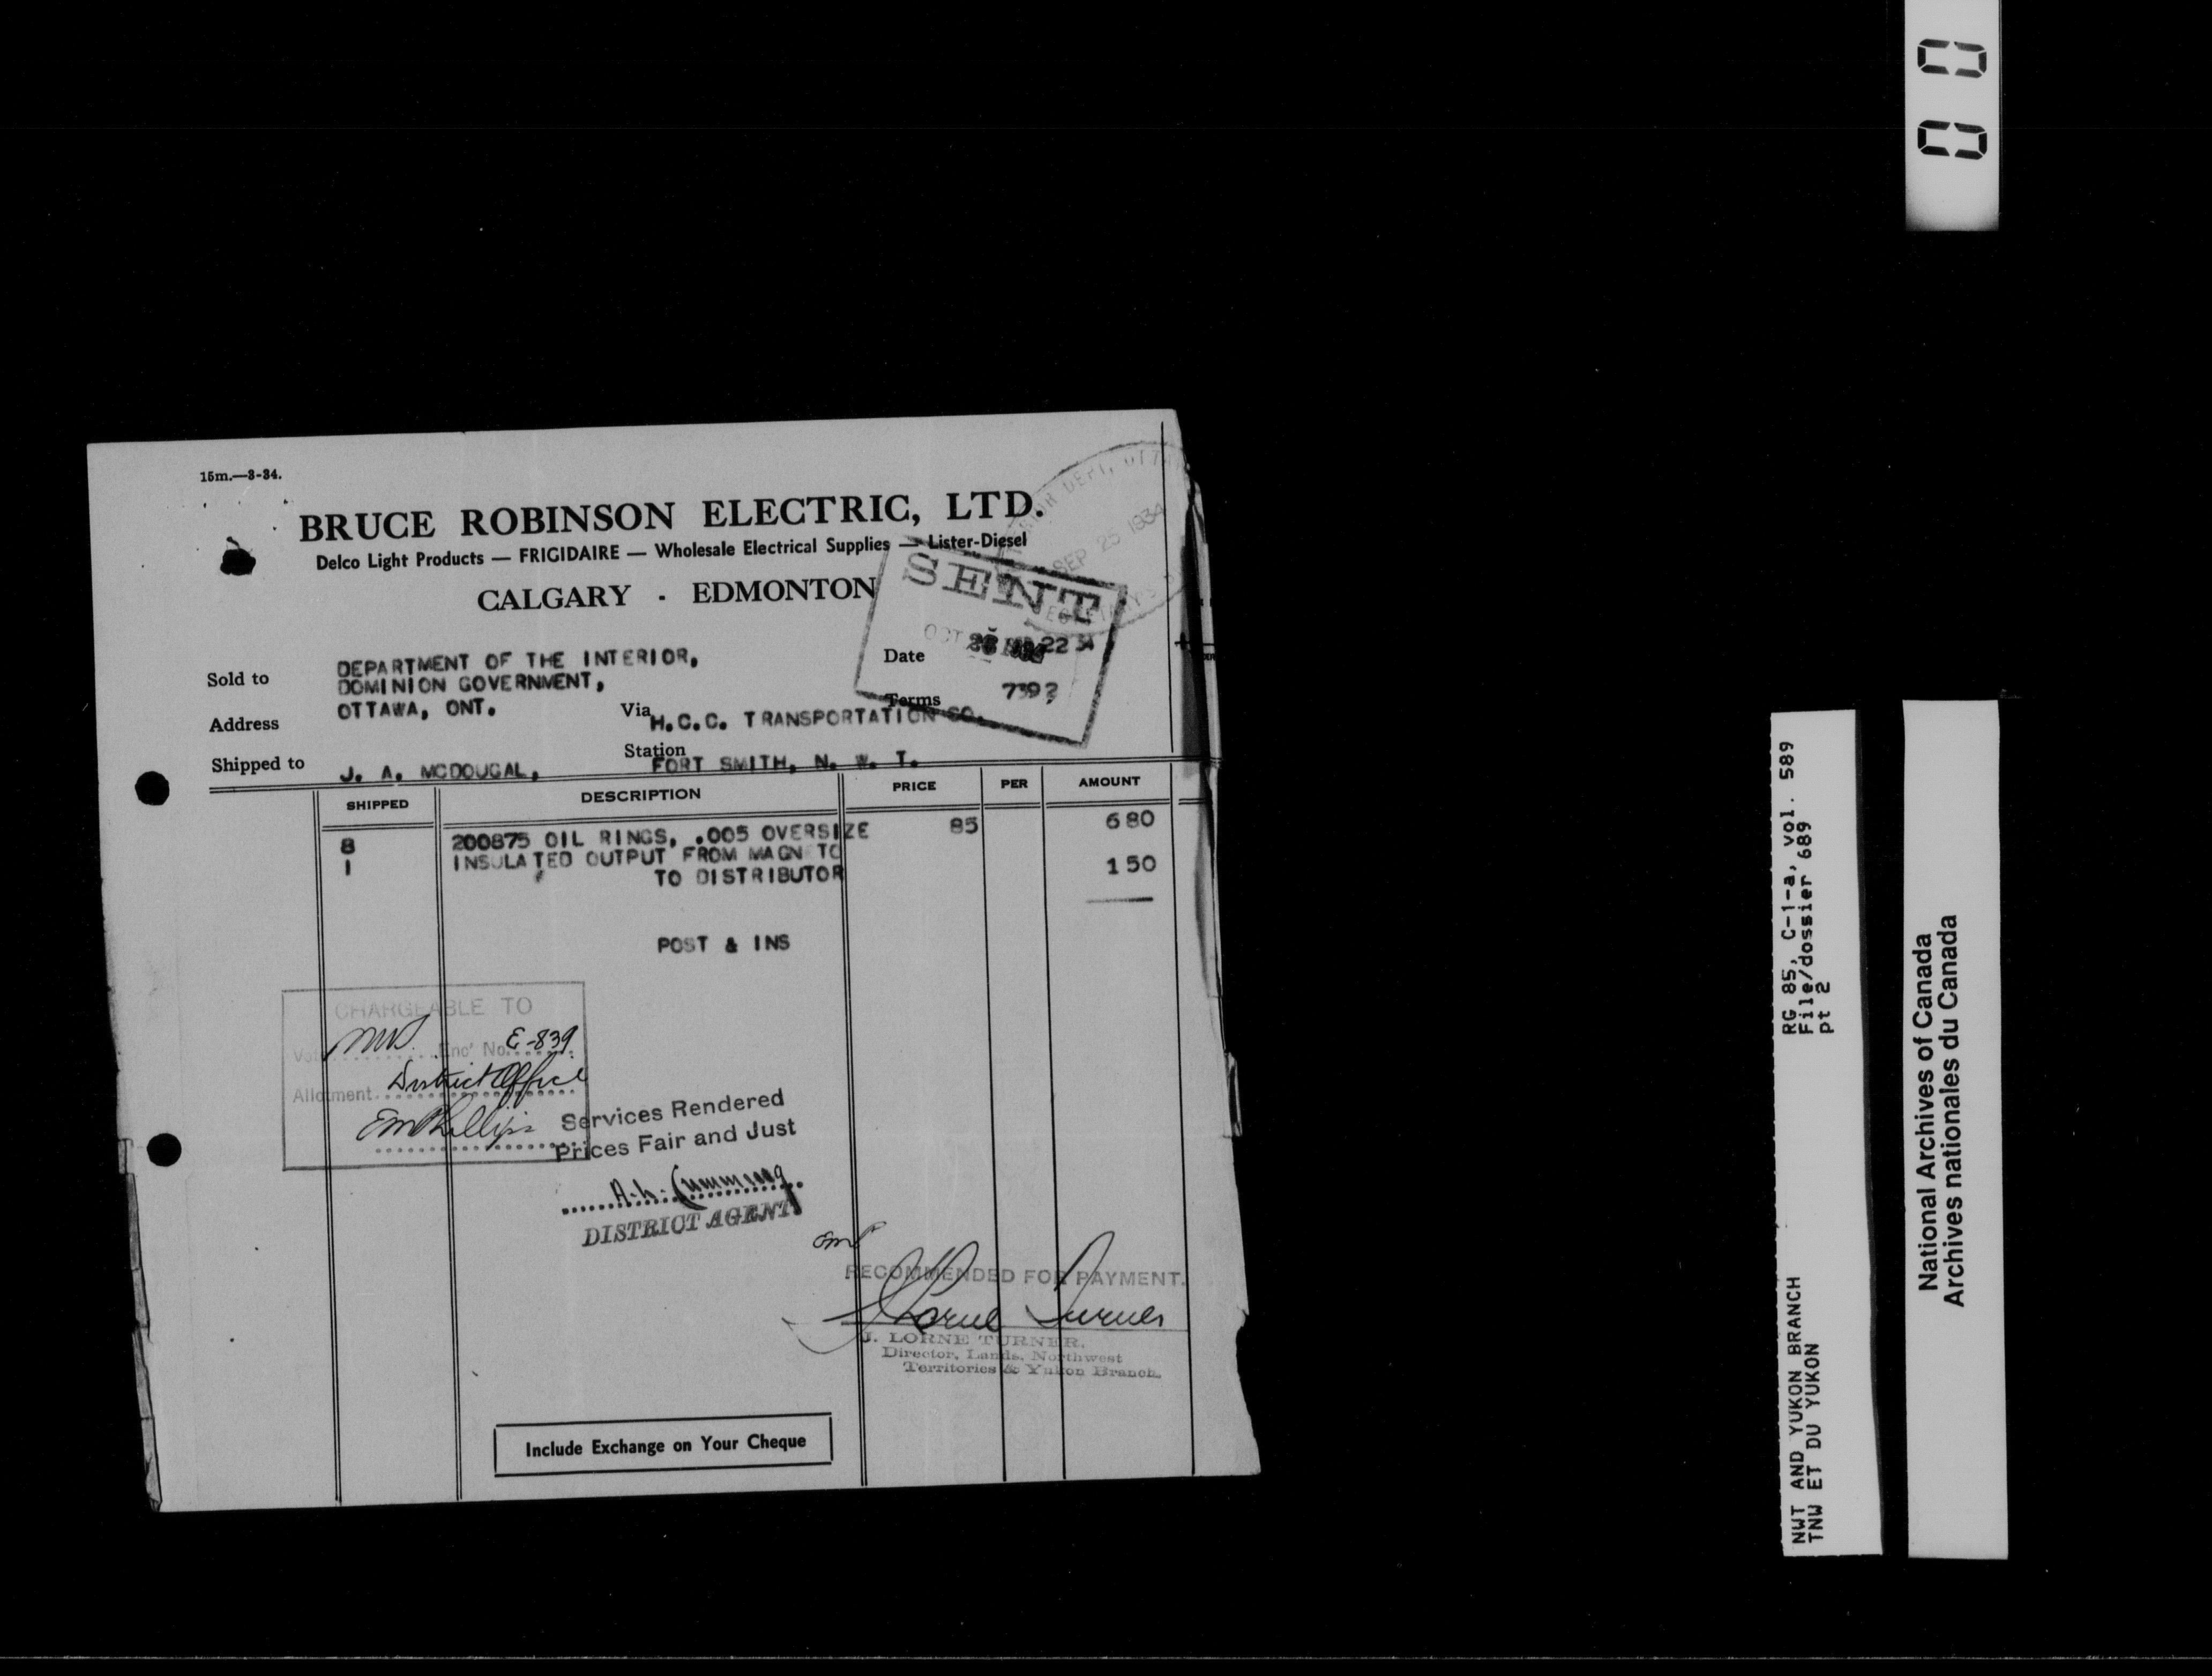 15m.—3-34.
BRUCE ROBINSON ELECTRIC, LTD.
Delco Light Products — FRIGIDAIRE — Wholesale Electrical Supplies — Lister-Diesel
CALGARY - EDMONTON
DEPT, OTT
SEP 25 1934
SENT
OCT
Date
22 34
Terms
739?
Sold to
DEPARTMENT OF THE INTERIOR,
DOMINION GOVERNMENT,
Address
OTTAWA, ONT.
Via H.C.C. TRANSPORTATION CO.
Shipped to J. A. MCDOUGAL,
Station FORT SMITH, N. W. T.
SHIPPED DESCRIPTION PRICE PER AMOUNT
8 200875 OIL RINGS, .005 OVERSIZE 85 6 80
1 INSULATED OUTPUT FROM MAGNETO
TO DISTRIBUTOR 1 50
POST & INS
CHARGEABLE TO
Vote NWT Enc' No. E-839
Allotment District Office
EmPhillips
Services Rendered
Prices Fair and Just
A. L. Cumming
DISTRICT AGENT
RECOMMENDED FOR PAYMENT.
J Lorne Turner
J. LORNE TURNER.
Director, Lands, Northwest
Territories & Yukon Branch.
Include Exchange on Your Cheque
RG 85, C-1-a, vol. 589
File/dossier 689
pt 2
NWT AND YUKON BRANCH
TNW ET DU YUKON
National Archives of Canada
Archives nationales du Canada